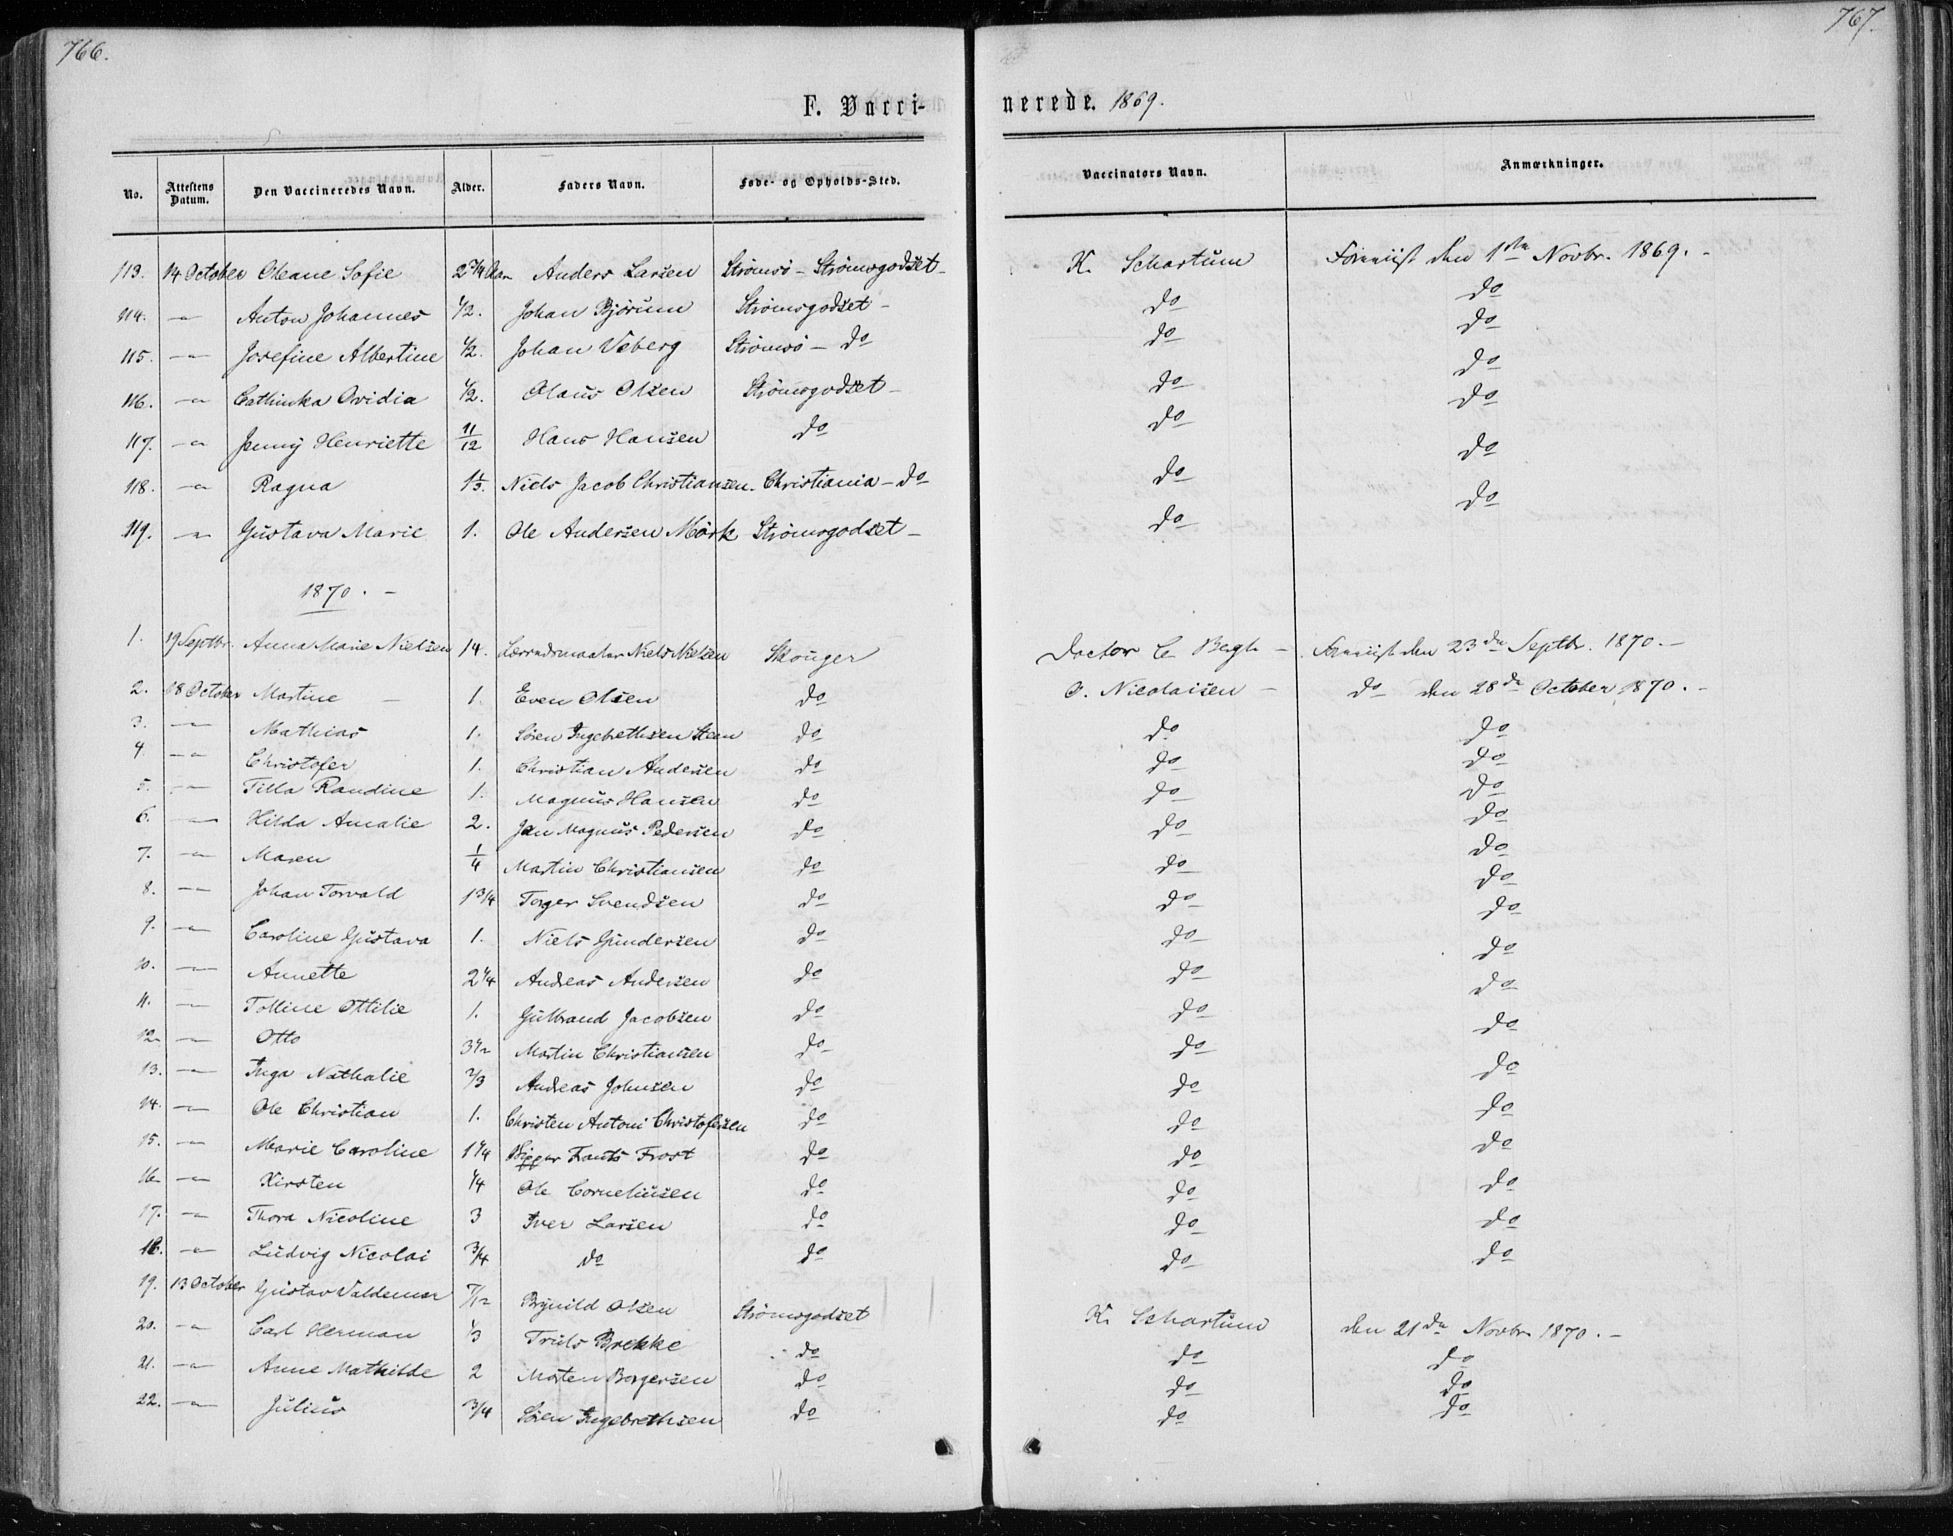 766.
767.
F. Vacci- nerede. 1869.
No. Attestens Datum. Den Vaccineredes Navn. Alder. Faders Navn. Føde- og Opholds-Sted. Vaccinators Navn. Anmærkninger.
113. 14 October Oleane Sofie 2 3/4 Aar Anders Larsen Strømsø - Strømsgodset - K. Schartum den 1ste Novbr. 1869. -
114. - " - Anton Johannes 1/2. Johan Bjørum Strømsgodset - do do
115. - " - Josefine Albertine 1/2. Johan Veberg Strømsø - do do do
116. - " - Cathinka Ovidia 1/2. Olaus Olsen Strømsgodset - do do
117. - " - Jenny Henriette 11/12 Hans Hansen do do do
118. - " - Ragna Niels Jacob Christiansen. Christiania - do do do
119. - " - Gustava Marie 1. Ole Andersen Mørk Strømsgodset - do do
1870. -
1. 19 Septbr. Anna Marie Nielsen 14. Niels Nielsen Skouger Doctor C. Bugh - den 23de Septbr. 1870. -
2. 18 October Martine - 1. Even Olsen do O. Nicolaisen - do den 28de October 1870. -
3. - " - Mathias 1. Søren Ingebrethsen Steen do do do
4. - " - Christofer 1. Christian Andersen do do do
5. - " - Tilla Randine 1. Magnus Hansen do do do
6. - " - Hilda Amalie 2. Jan Magnus Pedersen do do do
7. - " - Maren 1/4 Martin Christiansen do do do
8. - " - Johan Torvald 1 3/4 Torger Svendsen do do do
9. - " - Caroline Gustava 1. Niels Gundersen do do do
10. - " - Annette 2 1/4 Andreas Andersen do do do
11. - " - Tolline Ottilie 1. Gulbrand Jacobsen do do do
12. - " - Otto 3 1/2 Martin Christiansen do do do
13. - " - Inga Nathalie 2/3 Andreas Johnsen do do do
14. - " - Ole Christian 1. Christen Antoni Christofersen do do do
15. - " - Marie Caroline 1 1/4 Frants Frost do do do
16. - " - Kirsten 1/4 Ole Corneliusen do do do
17. - " - Thora Nicoline 3 Iver Larsen do do do
18. - " - Ludvig Nicolai 3/4 do do do do
19. 13 October Gustav Valdemar 7/12 Brynild Olsen Strømsgodset K. Schartum den 21de Novbr 1870. -
20. - " - Carl Herman 1/3 Truls Brekke do do do
21. - " - Anne Mathilde 2 Morten Borgersen do do do
22. - " - Julius 3/4 Søren Ingebrethsen do do do